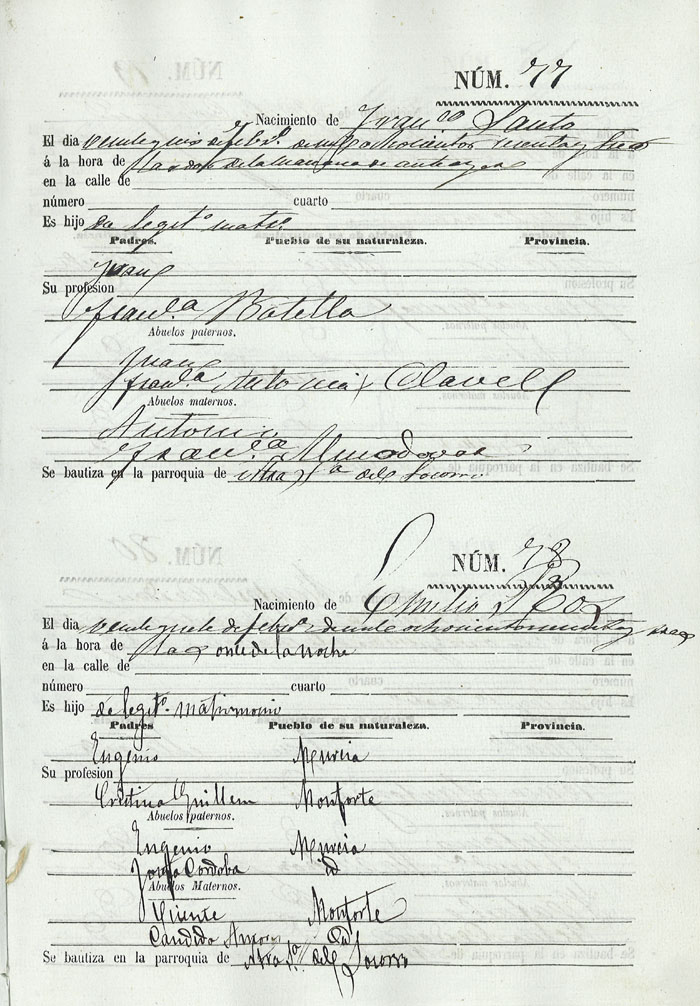 NÚM. 77
Nacimiento de Fran.co Santo
El dia de feb.o de mil ochocientos y
á la hora de las dos de la mañana de
en la calle de
número cuarto
Es hijo de legit.o mat.o
Padres. Pueblo de su naturaleza. Provincia.
Juan
Su profesion
Fran.ca Botella
Abuelos paternos.
Juan
Fran.ca Antonia Clavell
Abuelos maternos.
Antonio
Fran.ca Almodovar
Se bautiza en la parroquia de Ntra S.a del Socorro
NÚM. 78
Nacimiento de Emilia Ros
El dia veintisiete de feb.o de mil ochocientos y
á la hora de las once de la noche
en la calle de
número cuarto
Es hijo de legit.o matrimonio
Padres Pueblo de su naturaleza. Provincia.
Eugenio Murcia
Su profesion
Cristina Guillem Monforte
Abuelos paternos.
Eugenio Murcia
Josefa Cordoba id
Abuelos Maternos.
Vicente Monforte
Candida Amoros id
Se bautiza en la parroquia de Ntra S.a del Socorro